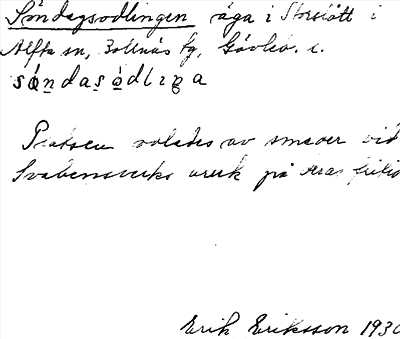 Söndagsodlingen äga i Storslått i
Alfta sn, Bollnäs tg, Gävleb. l.
söndasödliŋa
Platsen odlades av smeder vid
Svabensverks bruk på deras fritid
Erik Eriksson 1930